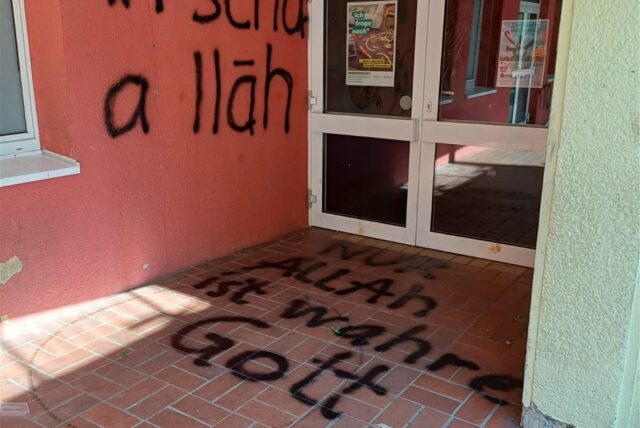 in scha
a llāh
„Ich
frage
nach"
NUR
ALLAh
ist wahre
Gott